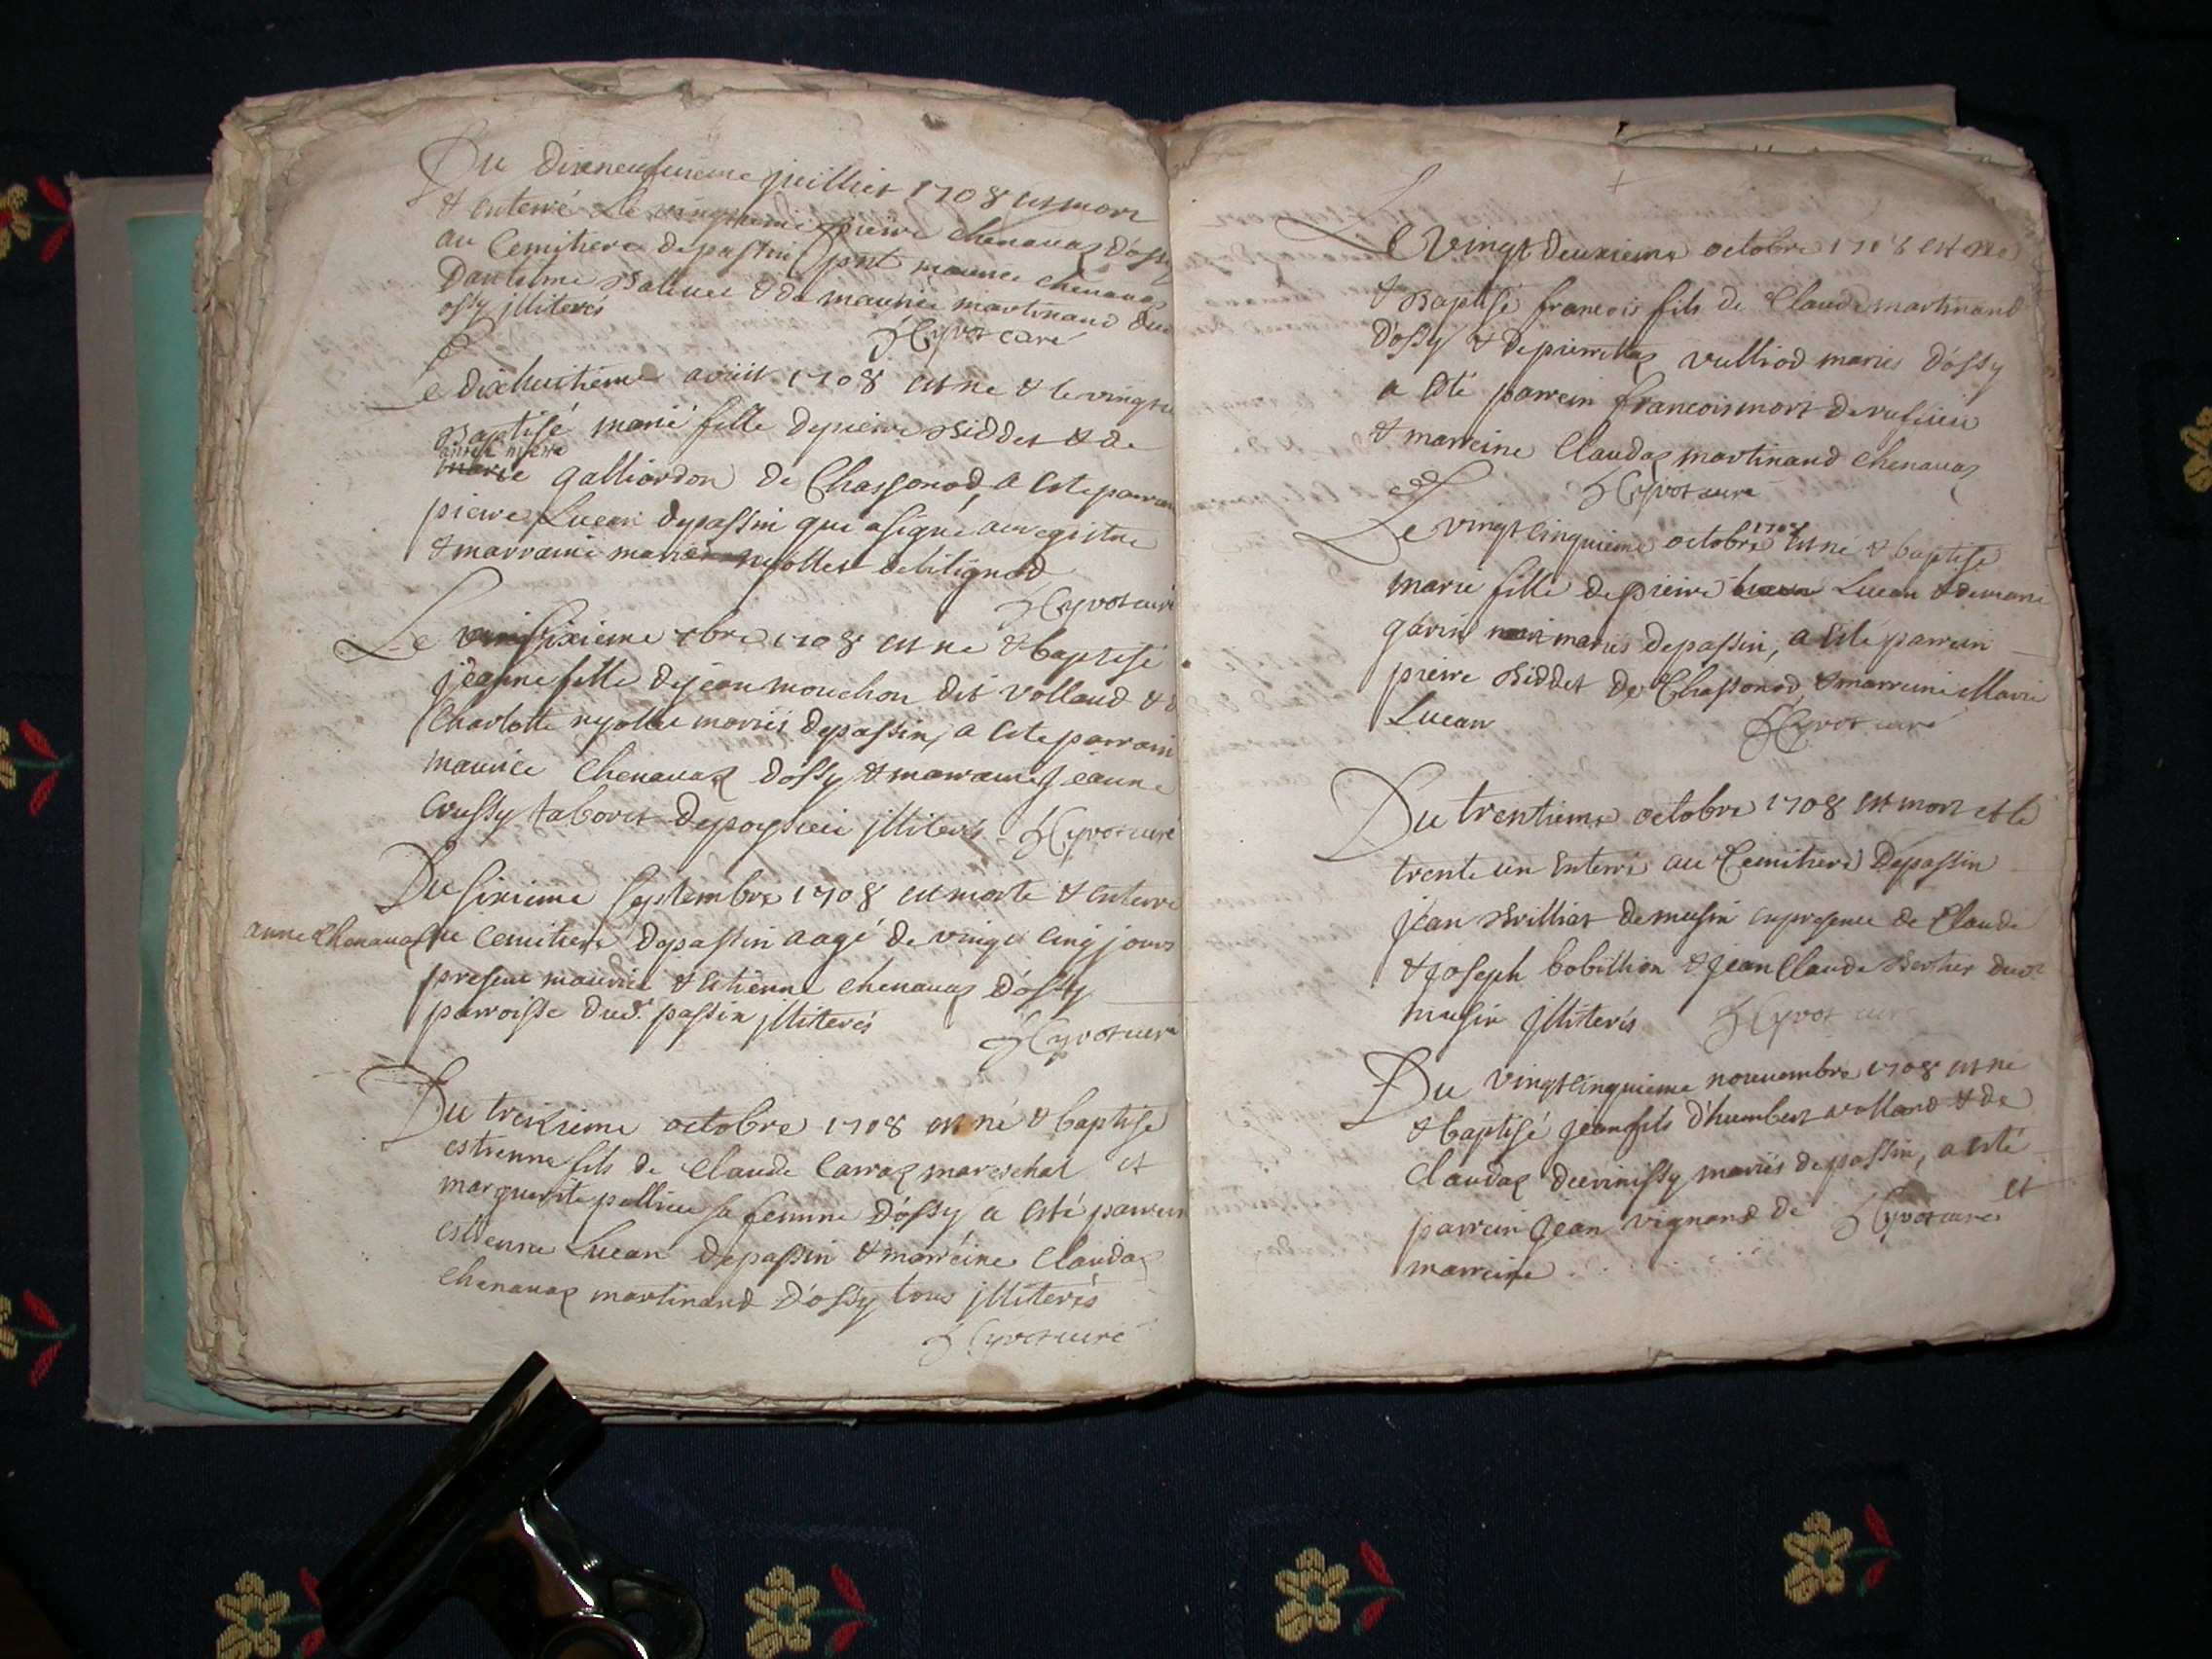 Du dixneufuieme juilliet 1708 est mort
& enterré le vingtieme pierre chenauaz dossy
au Cemitiere de passin pnt maurice chenauaz
Danthme & de maurice martinand dud
ossy jlliterés
Hyvot curé
Le dixhuitieme aoust 1708 est ne & le vingt
Baptisé marie fille de pierre Biddet & de
marie galliardon de Chassonod, a este parrain
pierre Lucan de passin qui a signé au registre
& marraine marie nyollet de lilignod
Hyvot curé
Le sixieme 7bre 1708 est ne & baptisé
jeanne fille de jean mouchon dit volland & d
Charlotte nyollet mariés de passin, a este parrain
maurice Chenauaz dossy & marraine jeanne
crussy taboret de poysieu jlliterés Hyvot curé
Du sixieme septembre 1708 est morte & enterré
anne Chenauaz au cemitiere de passin aagé de vingt cinq jours
present maurice & estienne chenauaz d'ossy
parroisse dud.t passin jlliterés
Hyvot curé
Du treizieme octobre 1708 est né & baptisé
estienne fils de Claude Carraz mareschal et
marguerite pellicu sa femme Dossy a esté parrein
estienne Lucan de passin & marreine Claudaz
Chenauaz martinand Dossy tous jlliterés
Hyvot curé
Le Vingt deuxieme octobre 1708 est née
& Baptisé francois fils de Claude martinand
Dossy & de pierrettaz vulliod mariés d'ossy
a esté parrein francois mort de rufieu
& marreine Claudaz martinand chenauaz
Hyvot curé
Le vingt cinquieme octobre 1708 est né & baptisé
marie fille de pierre Lucan & de marie
garin mariés de passin, a esté parrein
pierre Biddet de Chassonod, & marreine Marie
Lucan Hyvot curé
Du trentieme octobre 1708 est mort et le
trente un Enterré au Cemitiere De passin
jean Brilliat de musin en presence de Claude
& joseph bobillion & jean Claude Berthier dud.t
musin jlliterés Hyvot curé
Du vingtcinquieme nouuembre 1708 est né
& baptisé jean fils d'humbert volland & de
Claudaz mariés de passin, a esté
parrein jean vignand de Hyvot curé et
marreine